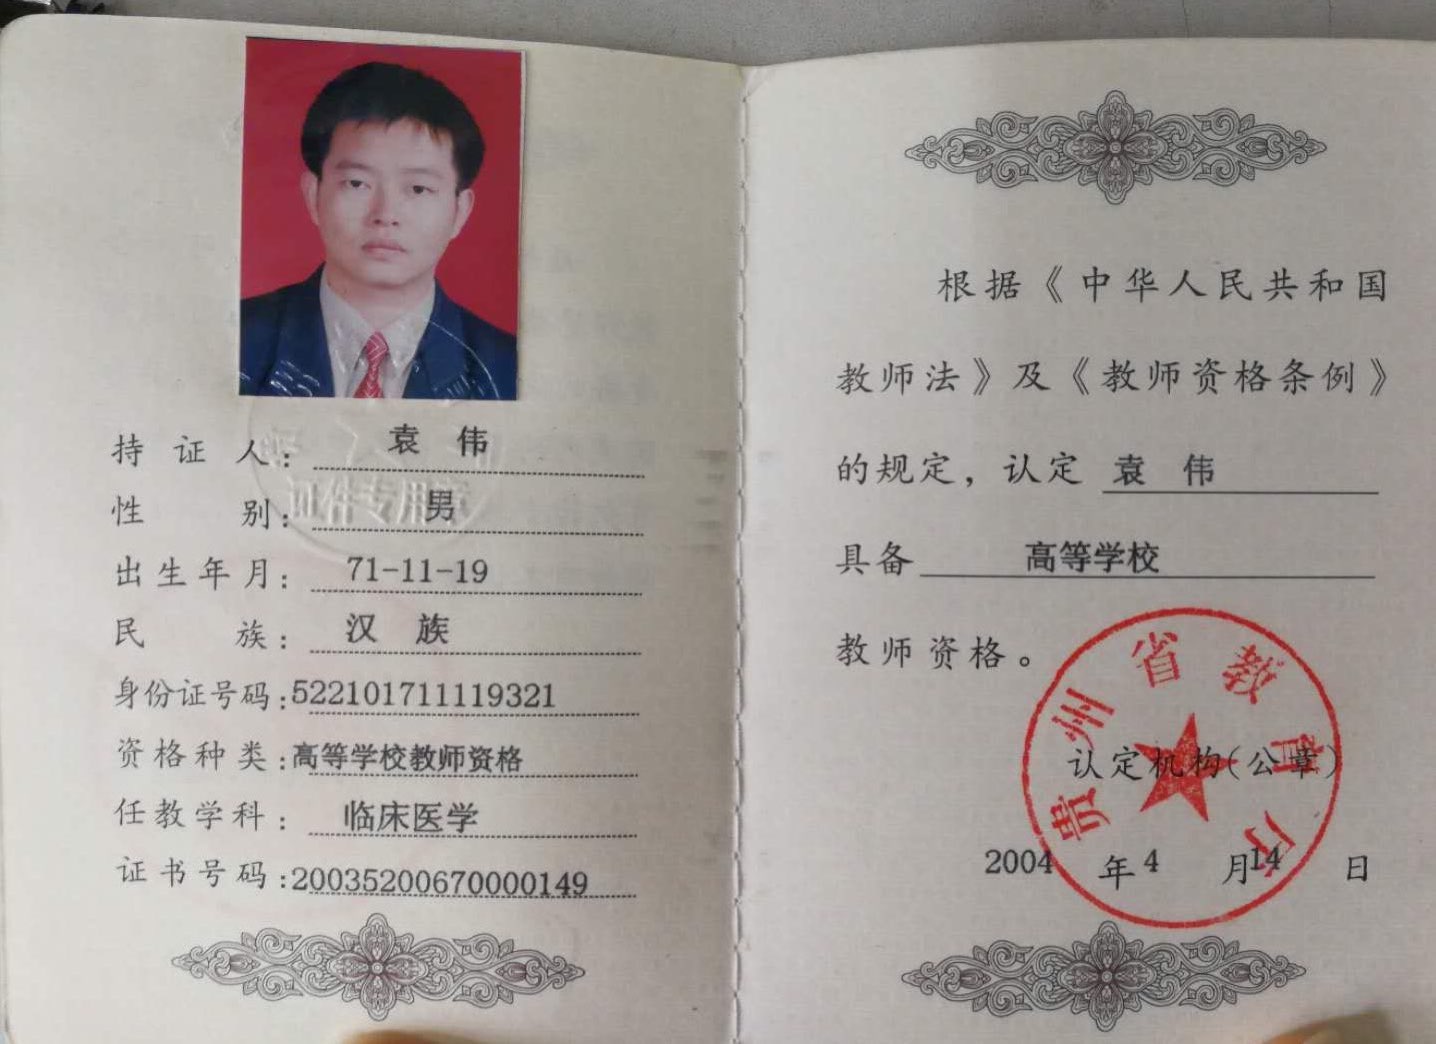 持证人：袁 伟
证件专用章
性别：男
出生年月：71-11-19
民族：汉 族
身份证号码：522101711119321
资格种类：高等学校教师资格
任教学科：临床医学
证书号码：20035200670000149
根据《中华人民共和国
教师法》及《教师资格条例》
的规定，认定 袁 伟
具备 高等学校
教师资格。
贵州省教育厅
认定机构（公章）
2004 年 4 月 14 日